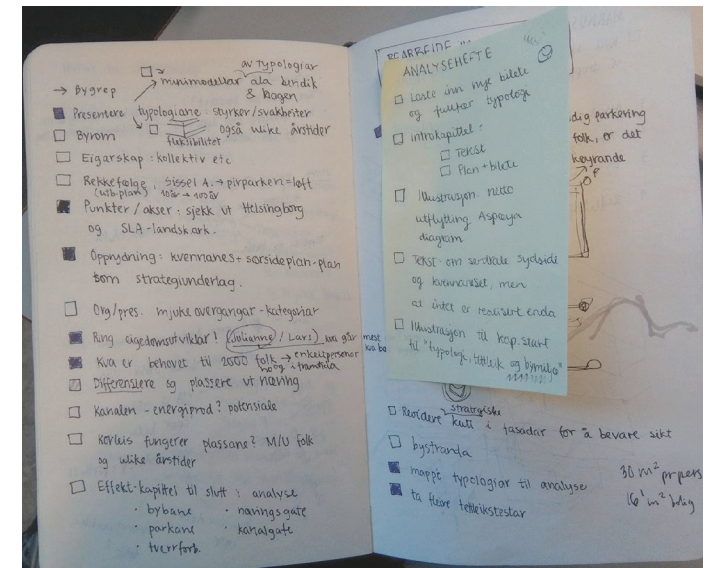 av typologiar
→ Bygrep
minimodellar ala bendik
& hagen
Presentere typologiane: styrker/svakheiter
Byrom
også ulike årstider
fleksibilitet
Eigarskap: kollektiv etc
Rekkefølge, Sissel A. → pirparken = løft
(utb.plan) 10 år → 100 år
Punkter / akser: sjekk ut Helsingborg
og SLA-landsk.ark.
Opprydning: kvernnes + sørsideplan-plan
som strategiunderlag.
Org/pres. mjuke overgangar - kategoriar
Ring eigedomsutviklar! (Julianne / Lars) kva går mest
kva be
Kva er behovet til 2000 folk → enkeltpersonar
og i framtida
Differensiere og plassere ut næring
Kanalen - energiprod? potensiale
Korleis fungerer plassane? M/U folk
og ulike årstider
Effekt-kapittel til slutt i analyse
· bybane
· næringsgate
· parkane
· kanalgate
· tverrforb.
ANALYSEHEFTE
Laste inn nye bilete
og typologi
introkapittel:
Tekst
Plan + bilete
Illustrasjon netto
utflytting. Asplan
diagram
Tekst om sentrale sydside
og kvernneset, men
at intet er realisert enda
Illustrasjon til kap.start
til "typologi, tettleik og bymiljø"
parkering
folk, er det
køyrande
P
strategiske
Revidere kutt i fasadar for å bevare sikt
bystranda
mappe typologiar til analyse
ta fleire tettleikstestar
30 m² pr pers